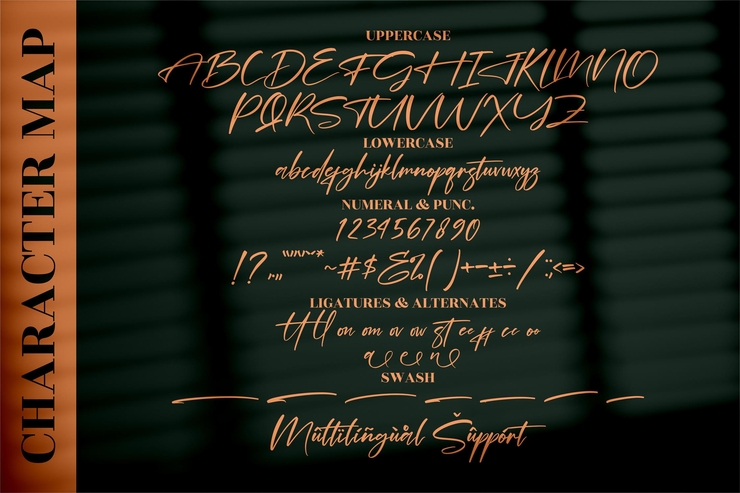 CHARACTER MAP
UPPERCASE
ABCDEFGHIJKLMNO
PQRSTUVWXYZ
LOWERCASE
abcdefghijklmnopqrstuvwxyz
NUMERAL & PUNC.
1234567890
!? #$&%()+-±÷/:;<=>
LIGATURES & ALTERNATES
tt ll on om ov ow st ee ff cc oo
a e c n e
SWASH
Mûltïlíñgùål Šûppórt